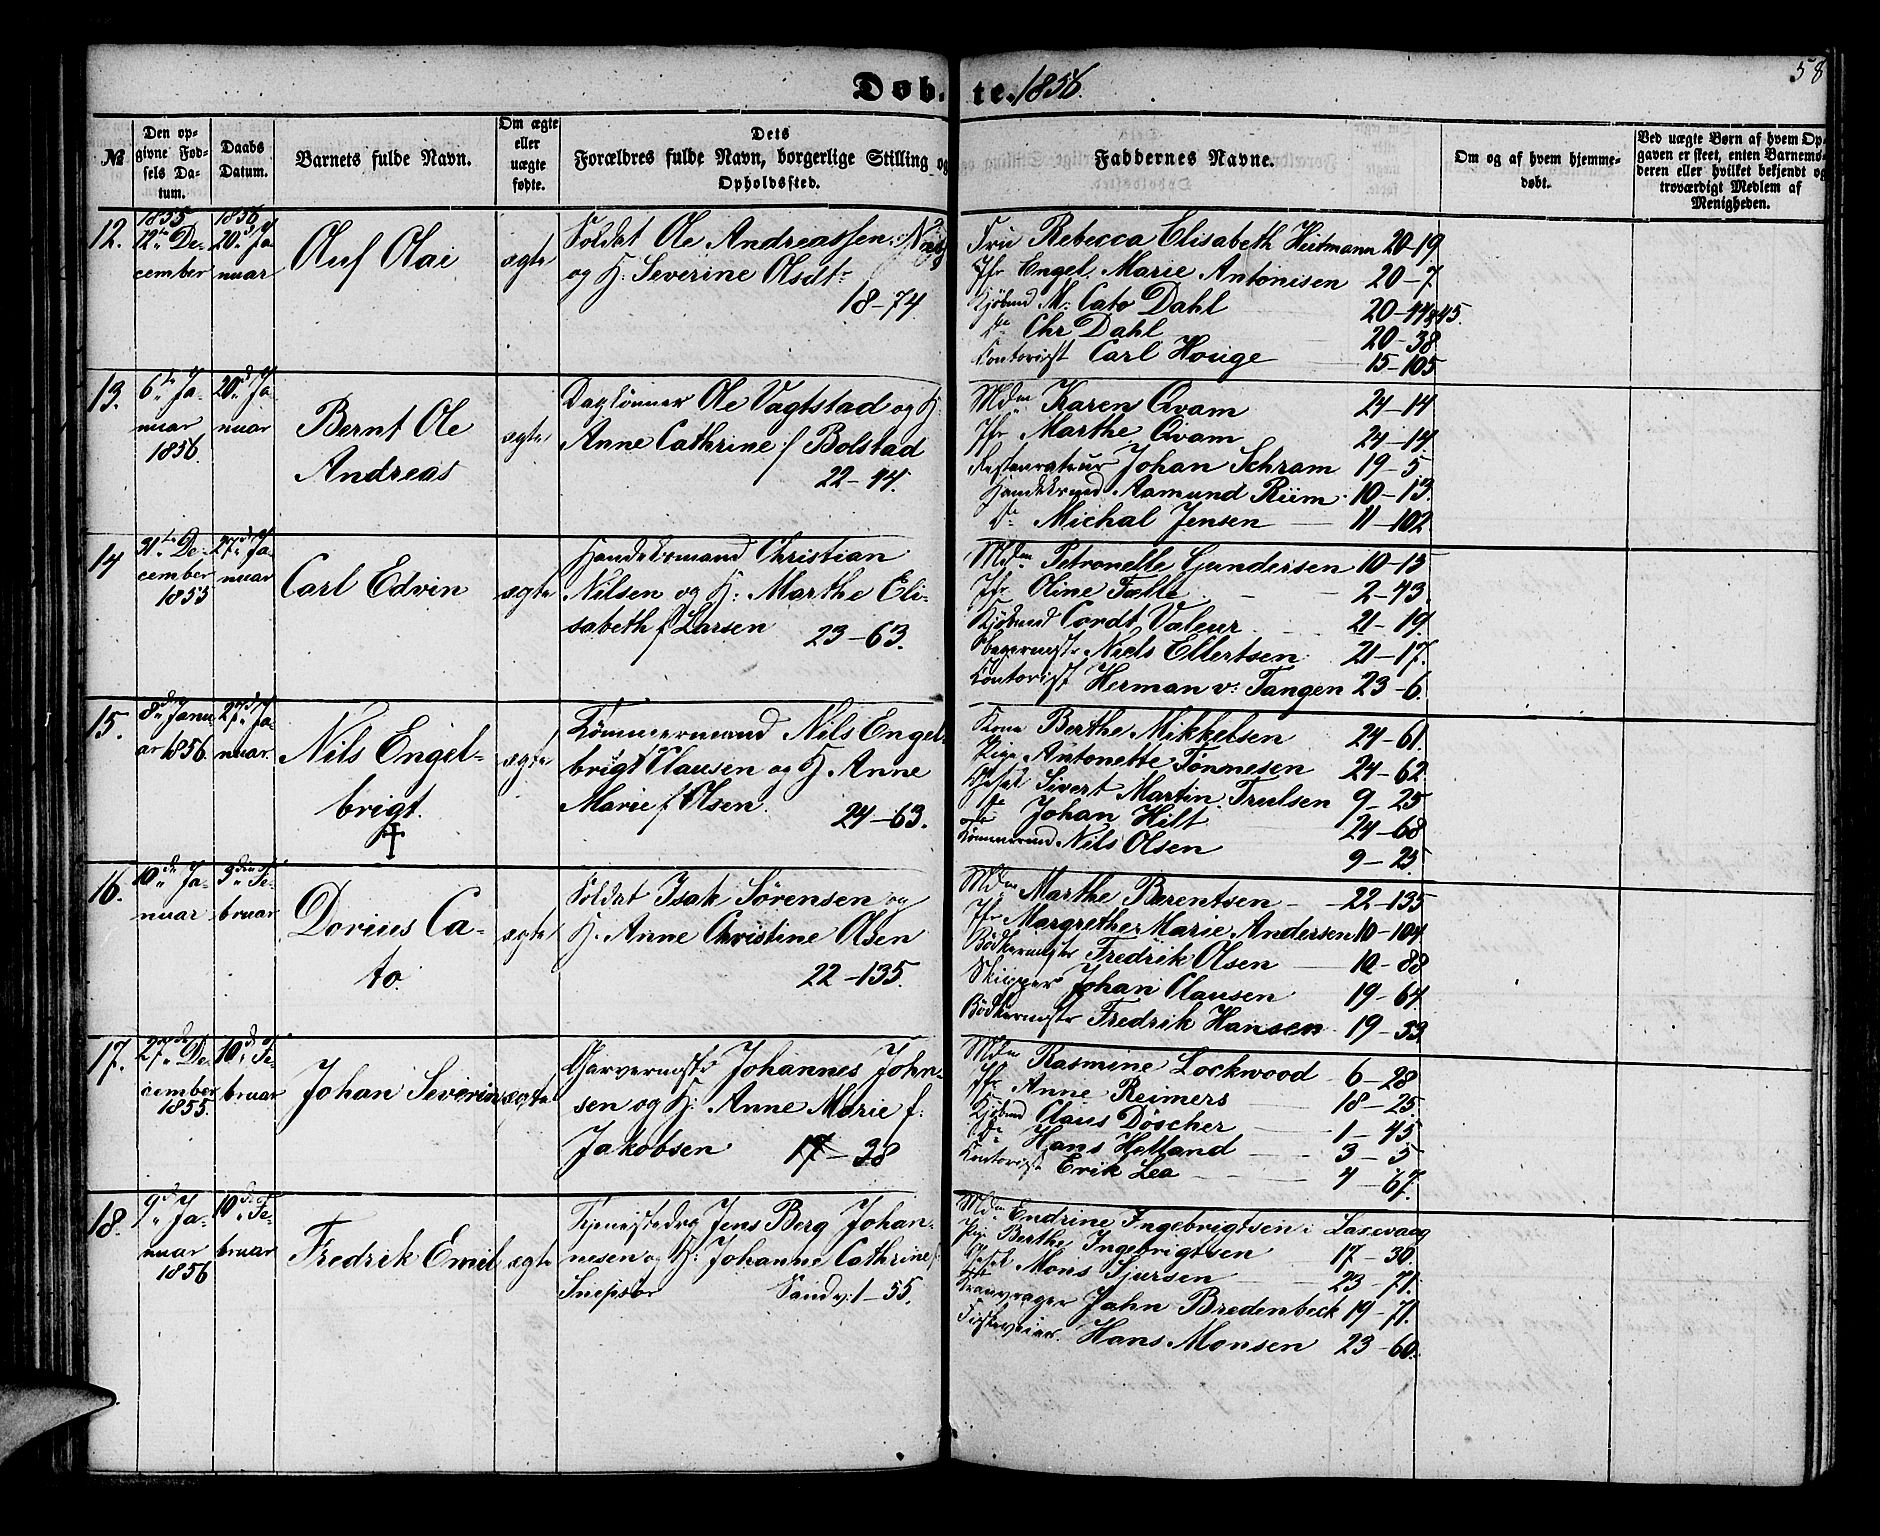 58
Døb- te. 1856.
№
Den op-
givne Fød-
sels Da-
tum.
Daabs
Datum.
Barnets fulde Navn.
Om ægte
eller
uægte
fødte.
Dets
Forældres fulde Navn, borgerlige Stilling og
Opholdssted.
Faddernes Navne.
Om og af hvem hjemme-
døbt.
Ved uægte Børn af hvem Op-
gaven er skeet, enten Barnemo-
deren eller hvilket bekjendt og
troværdigt Medlem af
Menigheden.
12.
1855
12te De-
cember
1856
20de Ja
nuar
Oluf Olai
ægte
Soldat Ole Andreassen
og H: Severine Olsdtr
18-74
Fru Rebecca Elisabeth Heitmann 20-19
Jfr Engel Marie Antonisen 20-7
Kjøbmd M: Cato Dahl 20-44&45.
do Chr Dahl 20-38
Kontorist Carl Houge 15-105
13.
6te Ja-
nuar
1856.
20de Ja
nuar
Bernt Ole
Andreas
ægte
Daglønner Ole Vagtstad og H.
Anne Cathrine f Bolstad
22-44.
Mdm Karen Qvam 24-14
Jfr Marthe Qvam 24-14.
Restaurateur Johan Schram 19-5
Handelsmd Aamund Riim 10-13.
do Michal Jensen 11-102
14
31te De-
cember
1855
27de Ja
nuar
Carl Edvin
ægte
Handelsmand Christian
Nilsen og H: Marthe Eli-
sabeth f Larsen 23-63.
Mdm Petronelle Gundersen 10-13
Jfr Oline Fælle 2-43.
Kjøbmd Cordt Valeur 21-19.
Bagermstr Niels Ellertsen 21-17.
Kontorist Herman v: Tangen 23-6.
15.
8de Janu
ar 1856.
27de Ja
nuar.
Nils Engel-
brigt.
†
ægte
Tømmermand Nils Engel-
brigt Clausen og H. Anne
Marie f Olsen. 24-63.
Kone Berthe Mikkelsen 24-61.
Pige Antonette Tønnesen 24-62.
Gesel Sivert Martin Trulsen 9-25
do Johan Hilt 24-68
Tømmermd Nils Olsen 9-25.
16.
10de Ja-
nuar
3die Fe-
bruar
Dorius Ca-
to.
ægte
Soldat Isak Sørensen og
H. Anne Christine Olsen
22-135.
Mdm Marthe Berentsen 22-135
Jfr Margrethe Marie Andersen 10-104
Bødkermstr Fredrik Olsen 10-88
Skipper Johan Clausen 19-64
Bødkermstr Fredrik Hansen 19-59
17.
27de De-
cember
1855.
10de Fe-
bruar
Johan Severin
ægte
Garvermstr Johannes John-
sen og H: Anne Marie f:
Jakobsen 17-38
Mdm Rasmine Lockwood 6-28
Jfr Anne Reimers 18-25.
Kjøbmd Claus Døscher 1-45
do Hans Hatland 3-5
Kontorist Erik Lea 4-67.
18.
9de Ja-
nuar
1856
10de Fe-
bruar
Fredrik Emil
ægte
Tjenestedrg Jens Berg Johan-
nesen og H: Johanne Cathrine f:
Snepsør Sandv: 1-55.
Mdm Endrine Ingebrigtsen i Laxevaag
Pig Berthe Ingebrigtsen 17-30.
Gesel Mons Sjursen 23-71.
Kranvrager Jahn Bredenbeck 19-71.
Hans Monsen 23-60.